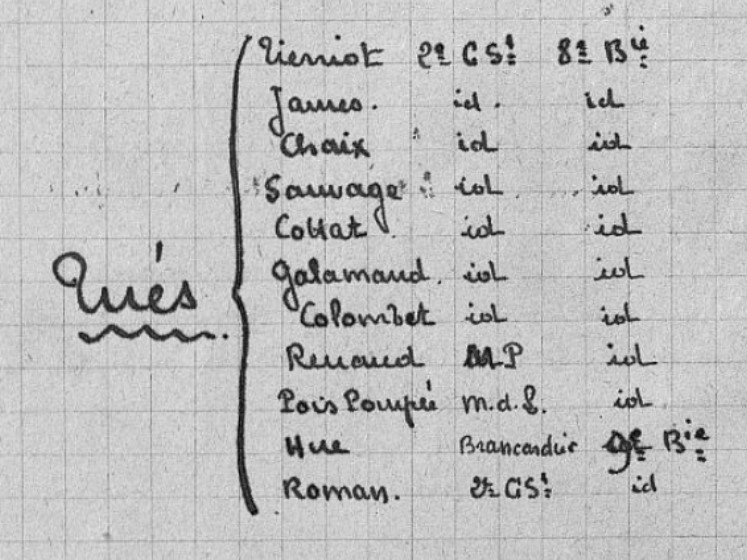 Tués
Vierriot 2e C St 8e Bie
James. id. id
Chaix id id
Sauvage id id
Collat id id
Galamaud. id id
Colombet id id
Renaud MP id
Pois Poupée m.d.l. id
Hue Brancardier 9e Bie
Roman. 2e C St id